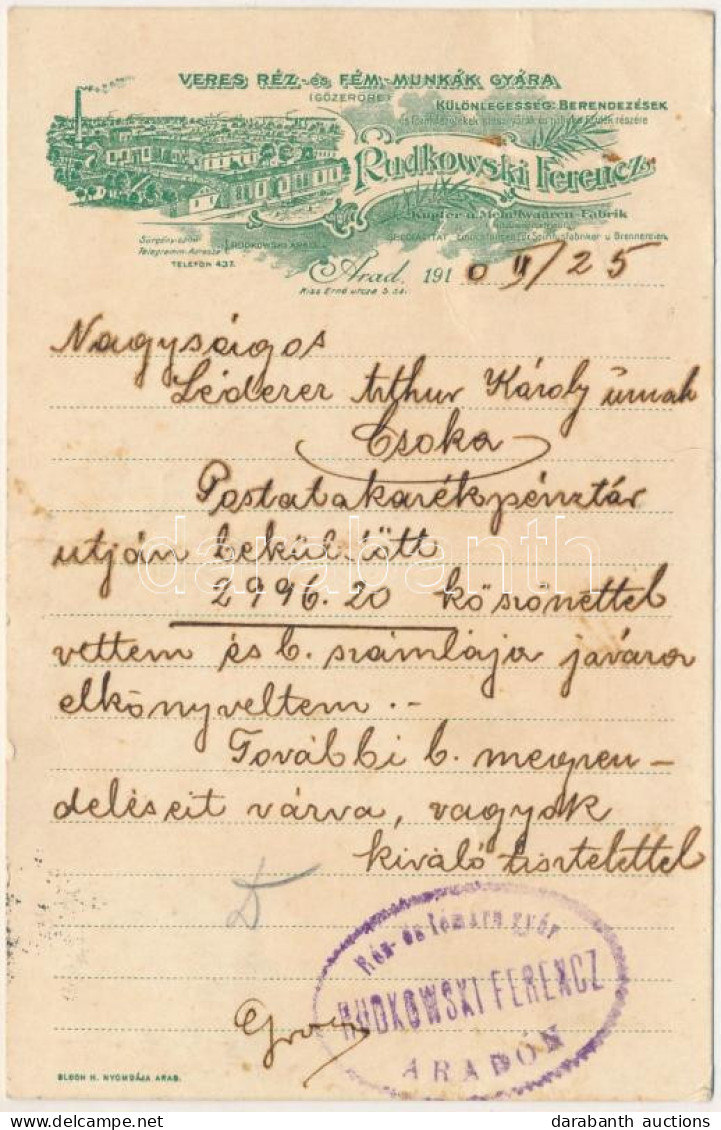 VERES RÉZ- és FÉM-MUNKÁK GYÁRA
(GŐZERŐRE)
KÜLÖNLEGESSÉG: BERENDEZÉSEK
Rudkowski Ferencz
Kupfer u. Metallwaaren-Fabrik
Sürgöny-czim
Telegramm-Adresse
RUDKOWSKI ARAD.
TELEFON 437.
Arad, 1910 VI/25
Kiss Ernő utcza 5. sz.
Nagyságos
Léderer Arthur Károly úrnak
Csoka
Postatakarékpénztár
utján bekül-tött
2996.20 köszönettel
vettem és b. számlája javára
elkönyveltem.-
További b. megren-
deléseit várva, vagyok
kiváló tisztelettel
Réz- és fémáru gyár
RUDKOWSKI FERENCZ
ARADON
BLOCH H. NYOMDÁJA ARAD.
darabanth
darabanth auctions